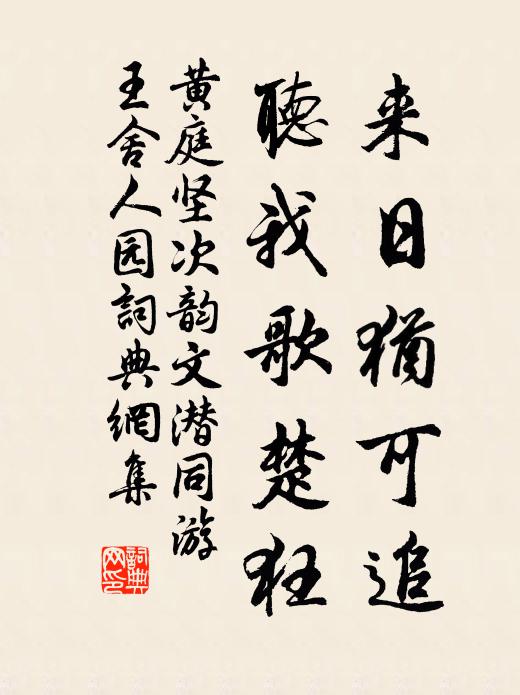 来日犹可追
聽我歌楚狂
黄庭坚次韵文潜同游
王舍人园詞典網集
詞典網印